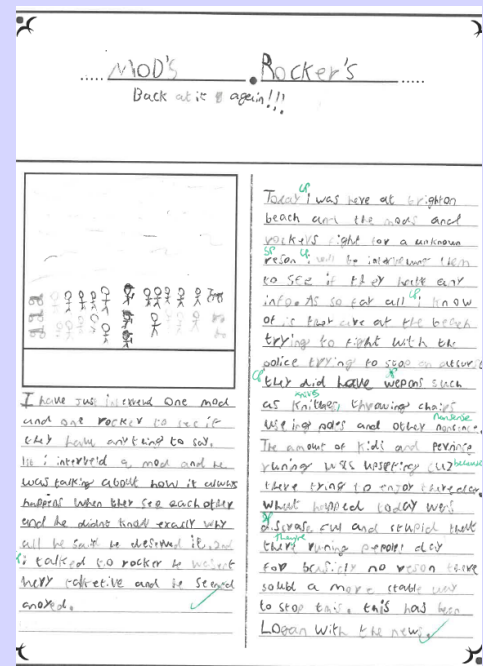 MOD'S Rocker's
Back at it again!!!
I have Just interved one mod
and one rocker to see if
they have anything to say.
i interve'd a mod and he
was talking about how it always
happens when they see eachother
and he didnt know exactly why
all he said he deserved it. and
i talked to rocker he wasent
very talketive and he seemed
anoyed.
Today i was here at brighton
beach and the mods and
rockers fight for a unknown
reson i will be interveing them
to see if they have any
info. As so far all i know
of is that are at the beach
trying to fight with the
police trying to stop an
they did have wepons such
as throwing chairs
useing poles and other nonsence.
nonsense
The amount of kids and
runing was upseting cuz
because
there trying to enjoy there day.
what happed today was
and stupid that
They're
there runing day
for no reson there
a more stable way
to stop this. this has been
Logan with the news.